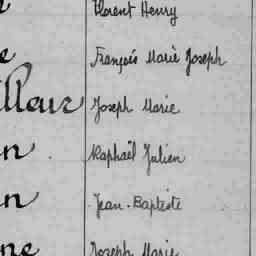 Florent Henry
François Marie Joseph
Joseph Marie
Raphaël Julien
Jean-Baptiste
Joseph Marie